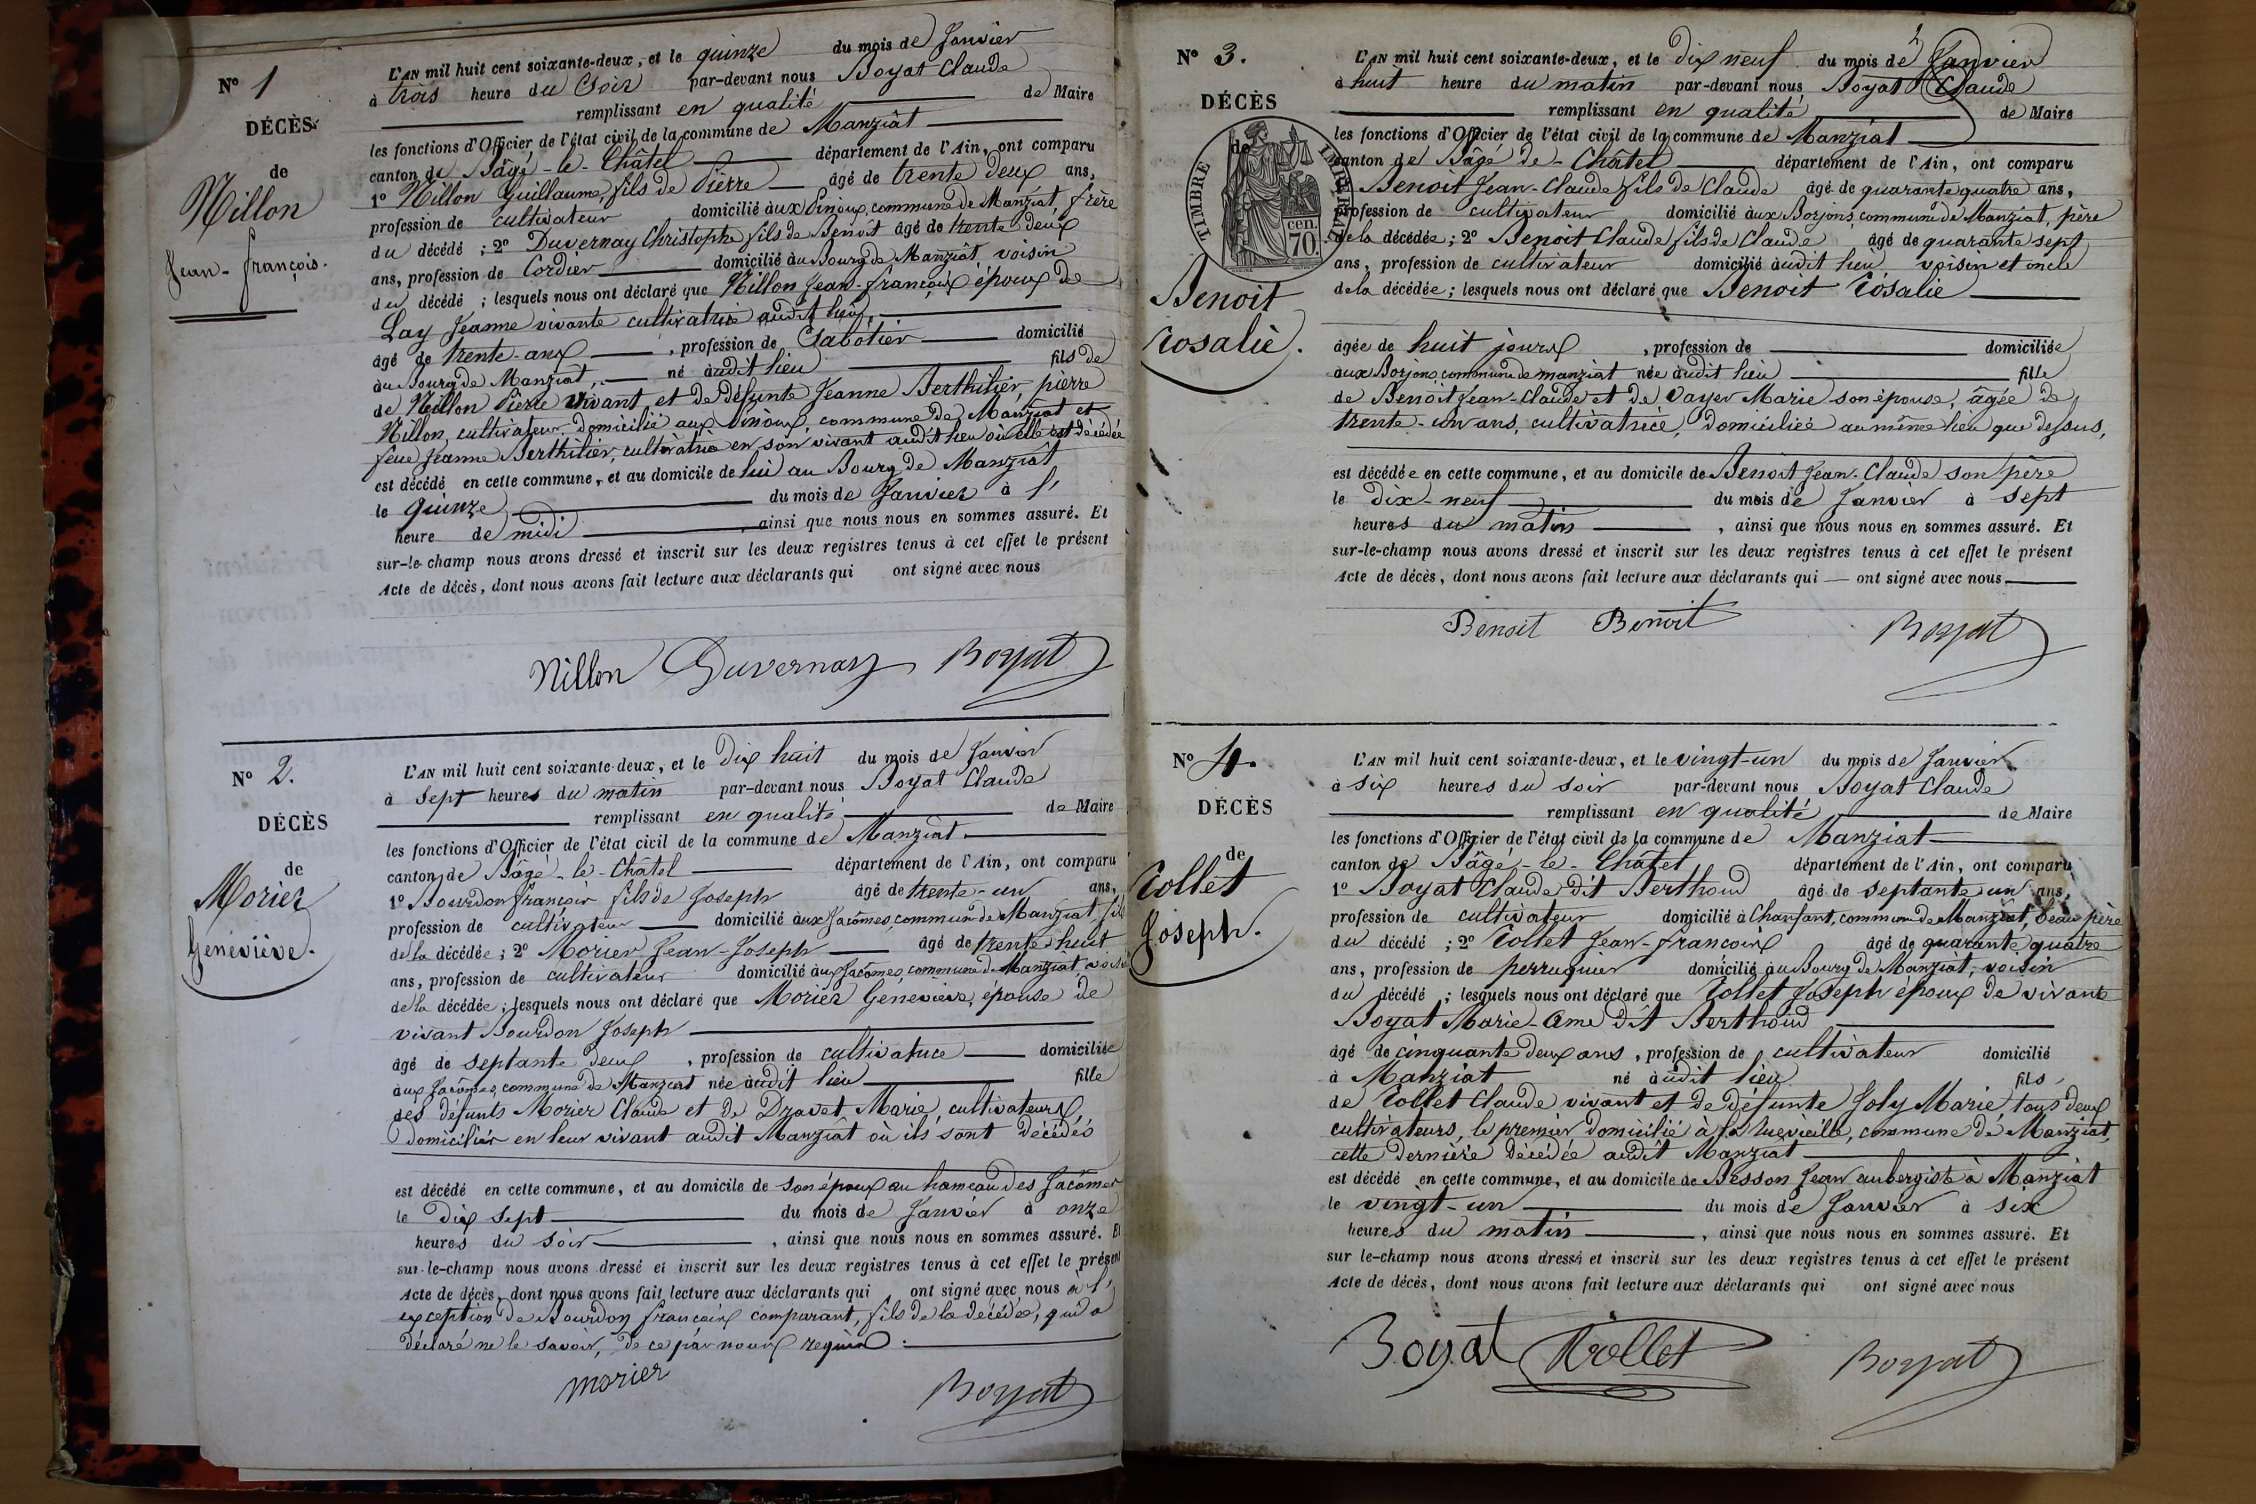 Nº 1
DÉCÈS
de
Nillon
Jean-François.
L'AN mil huit cent soixante-deux, et le quinze du mois de Janvier
à trois heure du Soir par-devant nous Boyat Claude
remplissant en qualité de Maire
les fonctions d'Officier de l'état civil de la commune de Manziat
canton de Bâgé-le-Châtel département de l'Ain, ont comparu
1º Nillon Guillaume, fils de Pierre âgé de trente deux ans,
profession de cultivateur domicilié aux Pinoux, commune de Manziat, frère
du décédé ; 2º Duvernay Christophe fils de Benoît âgé de trente deux
ans, profession de Cordier domicilié au Bourg de Manziat, voisin
du décédé ; lesquels nous ont déclaré que Nillon Jean-François époux de
Lay Jeanne vivante cultivatrice audit lieu,
âgé de trente-ans, profession de Sabotier domicilié
au Bourg de Manziat, né audit lieu fils de
de Nillon Pierre vivant et de défunte Jeanne Berthilier, pierre
Nillon, cultivateur, domicilié aux Pinoux, commune de Manziat et
feue Jeanne Berthilier, cultivatrice en son vivant audit lieu où elle est décédée
est décédé en cette commune, et au domicile de lui au Bourg de Manziat
le quinze du mois de Janvier à l'
heure de midi, ainsi que nous nous en sommes assuré. Et
sur-le-champ nous avons dressé et inscrit sur les deux registres tenus à cet effet le présent
Acte de décès, dont nous avons fait lecture aux déclarants qui ont signé avec nous
Nillon Duvernay Boyat
Nº 2.
DÉCÈS
de
Morier
Geneviève.
L'AN mil huit cent soixante-deux, et le Dix huit du mois de Janvier
à sept heures du matin par-devant nous Boyat Claude
remplissant en qualité de Maire
les fonctions d'Officier de l'état civil de la commune de Manziat
canton de Bâgé-le-Châtel département de l'Ain, ont comparu
1º Bourdon François fils de Joseph âgé de trente-un ans,
profession de cultivateur domicilié aux Jacômes, commune de Manziat, fils
de la décédée ; 2º Morier Jean-Joseph âgé de trente huit
ans, profession de cultivateur domicilié aux Jacômes, commune de Manziat, voisin
de la décédée ; lesquels nous ont déclaré que Morier Geneviève, épouse de
vivant Bourdon Joseph
âgé de septante deux, profession de cultivatrice domiciliée
aux Jacômes, commune de Manziat née audit lieu fille
des défunts Morier Claude et de Dravet Marie, cultivateurs,
domiciliés en leur vivant audit Manziat où ils sont décédés
est décédé en cette commune, et au domicile de son époux au hameau des Jacômes
le Dix sept du mois de Janvier à onze
heures du soir, ainsi que nous nous en sommes assuré. Et
sur-le-champ nous avons dressé et inscrit sur les deux registres tenus à cet effet le présent
Acte de décès, dont nous avons fait lecture aux déclarants qui ont signé avec nous à l'
exception de Bourdon François comparant, fils de la décédée, qui a
déclaré ne le savoir, de ce par nous requis.
morier Boyat
Nº 3.
DÉCÈS
de
TIMBRE IMPÉRIAL
70 cen.
Benoit
Rosalie.
L'AN mil huit cent soixante-deux, et le dix neuf du mois de Janvier
à huit heure du matin par-devant nous Boyat Claude
remplissant en qualité de Maire
les fonctions d'Officier de l'état civil de la commune de Manziat
canton de Bâgé-le-Châtel département de l'Ain, ont comparu
Benoit Jean-Claude fils de Claude âgé de quarante quatre ans,
profession de cultivateur domicilié aux Borjons, commune de Manziat, père
de la décédée ; 2º Benoit Claude fils de Claude âgé de quarante sept
ans, profession de cultivateur domicilié audit lieu voisin et oncle
de la décédée ; lesquels nous ont déclaré que Benoit Rosalie
âgée de huit jours, profession de domiciliée
aux Borjons, commune de manziat née audit lieu fille
de Benoit Jean-Claude et de Vayer Marie son épouse, âgée de
trente-un ans, cultivatrice, domiciliée au même lieu que dessus,
est décédée en cette commune, et au domicile de Benoit Jean-Claude son père
le dix-neuf du mois de Janvier à sept
heures du matin, ainsi que nous nous en sommes assuré. Et
sur-le-champ nous avons dressé et inscrit sur les deux registres tenus à cet effet le présent
Acte de décès, dont nous avons fait lecture aux déclarants qui ont signé avec nous
Benoit Benoit Boyat
Nº 4.
DÉCÈS
de
Collet
Joseph.
L'AN mil huit cent soixante-deux, et le vingt-un du mois de Janvier
à six heures du soir par-devant nous Boyat Claude
remplissant en qualité de Maire
les fonctions d'Officier de l'état civil de la commune de Manziat
canton de Bâgé-le-Châtel département de l'Ain, ont comparu
1º Boyat Claude dit Berthoud âgé de septante un ans,
profession de cultivateur domicilié à Chanfant, commune de Manziat, beau père
du décédé ; 2º Collet Jean-François âgé de quarante quatre
ans, profession de perruquier domicilié au Bourg de Manziat, voisin
du décédé ; lesquels nous ont déclaré que Collet Joseph époux de vivante
Boyat Marie-Ame dit Berthoud
âgé de cinquante deux ans, profession de cultivateur domicilié
à Manziat né audit lieu fils
de Collet Claude vivant et de défunte Joly Marie, tous deux
cultivateurs, le premier domicilié à commune de Manziat,
cette dernière décédée audit Manziat
est décédé en cette commune, et au domicile de Besson Jean aubergiste à Manziat
le vingt-un du mois de Janvier à six
heures du matin, ainsi que nous nous en sommes assuré. Et
sur le-champ nous avons dressé et inscrit sur les deux registres tenus à cet effet le présent
Acte de décès, dont nous avons fait lecture aux déclarants qui ont signé avec nous
Boyat Collet Boyat